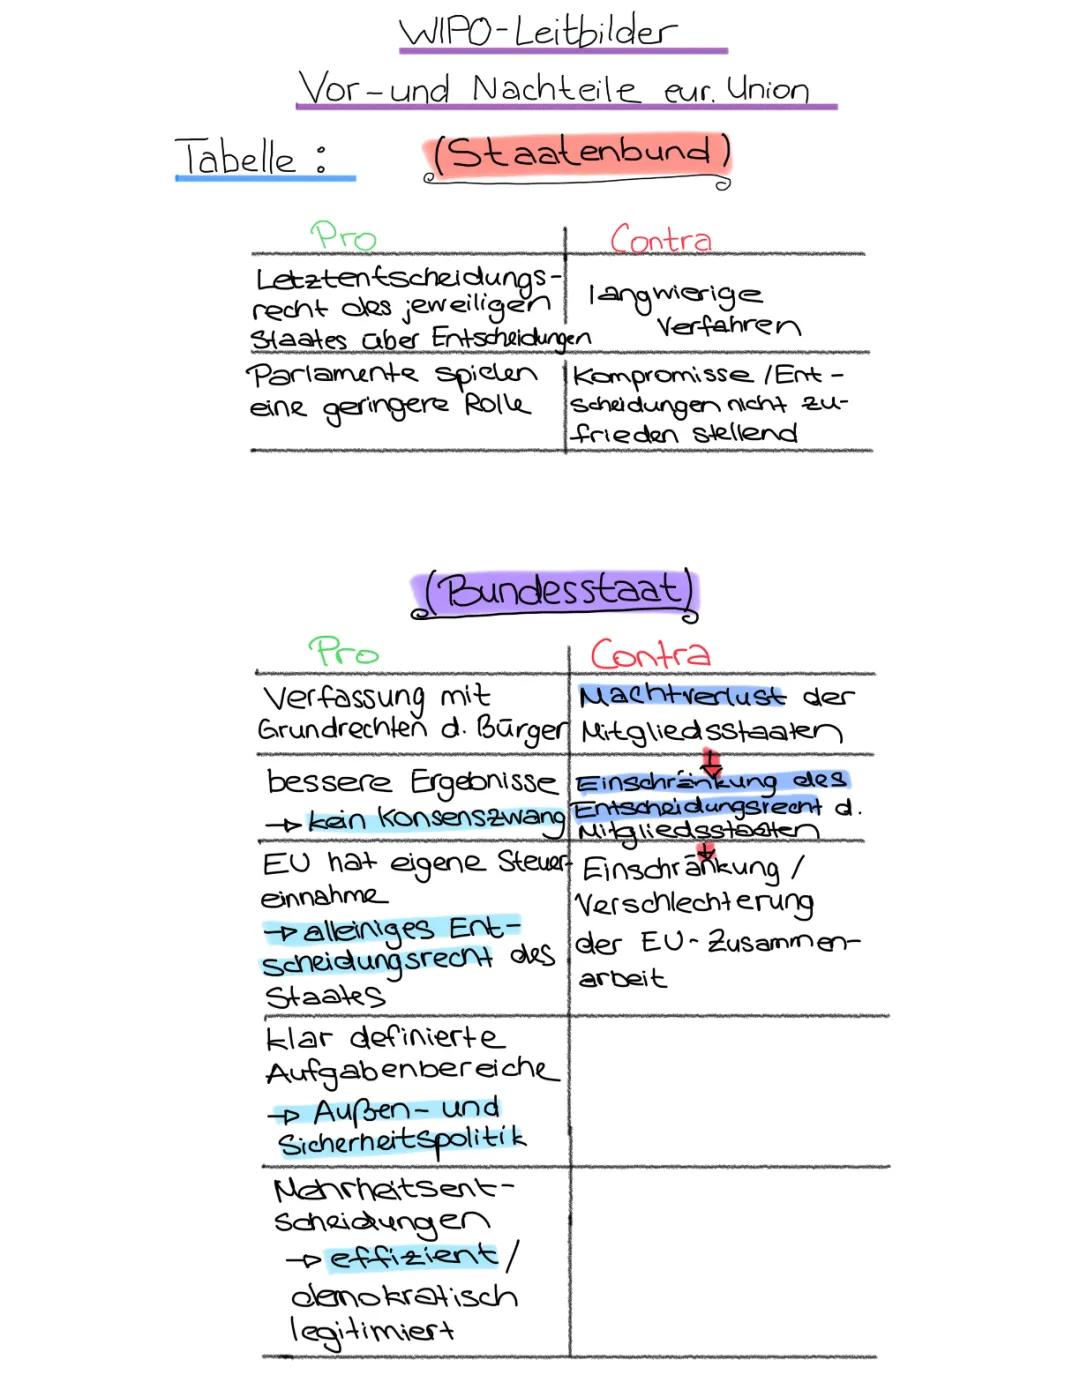 WIPO-Leitbilder
Vor-und Nachteile eur. Union
Tabelle :
(Staatenbund)
Pro
Contra
Letztentscheidungs-
recht des jeweiligen
Staates über Entscheidungen
langwierige
Verfahren
Parlamente spielen
eine geringere Rolle
Kompromisse /Ent-
scheidungen nicht zu-
frieden stellend
(Bundesstaat)
Pro
Contra
Verfassung mit
Grundrechten d. Bürger
Machtverlust der
Mitgliedsstaaten
bessere Ergebnisse
→ kein Konsenszwang
Einschränkung des
Entscheidungsrecht d.
Mitgliedsstaaten
EU hat eigene Steuer-
einnahme
→ alleiniges Ent-
scheidungsrecht des
Staates
Einschränkung /
Verschlechterung
der EU-Zusammen-
arbeit
klar definierte
Aufgabenbereiche
→ Außen- und
Sicherheitspolitik
Mehrheitsent-
scheidungen
→ effizient /
demokratisch
legitimiert